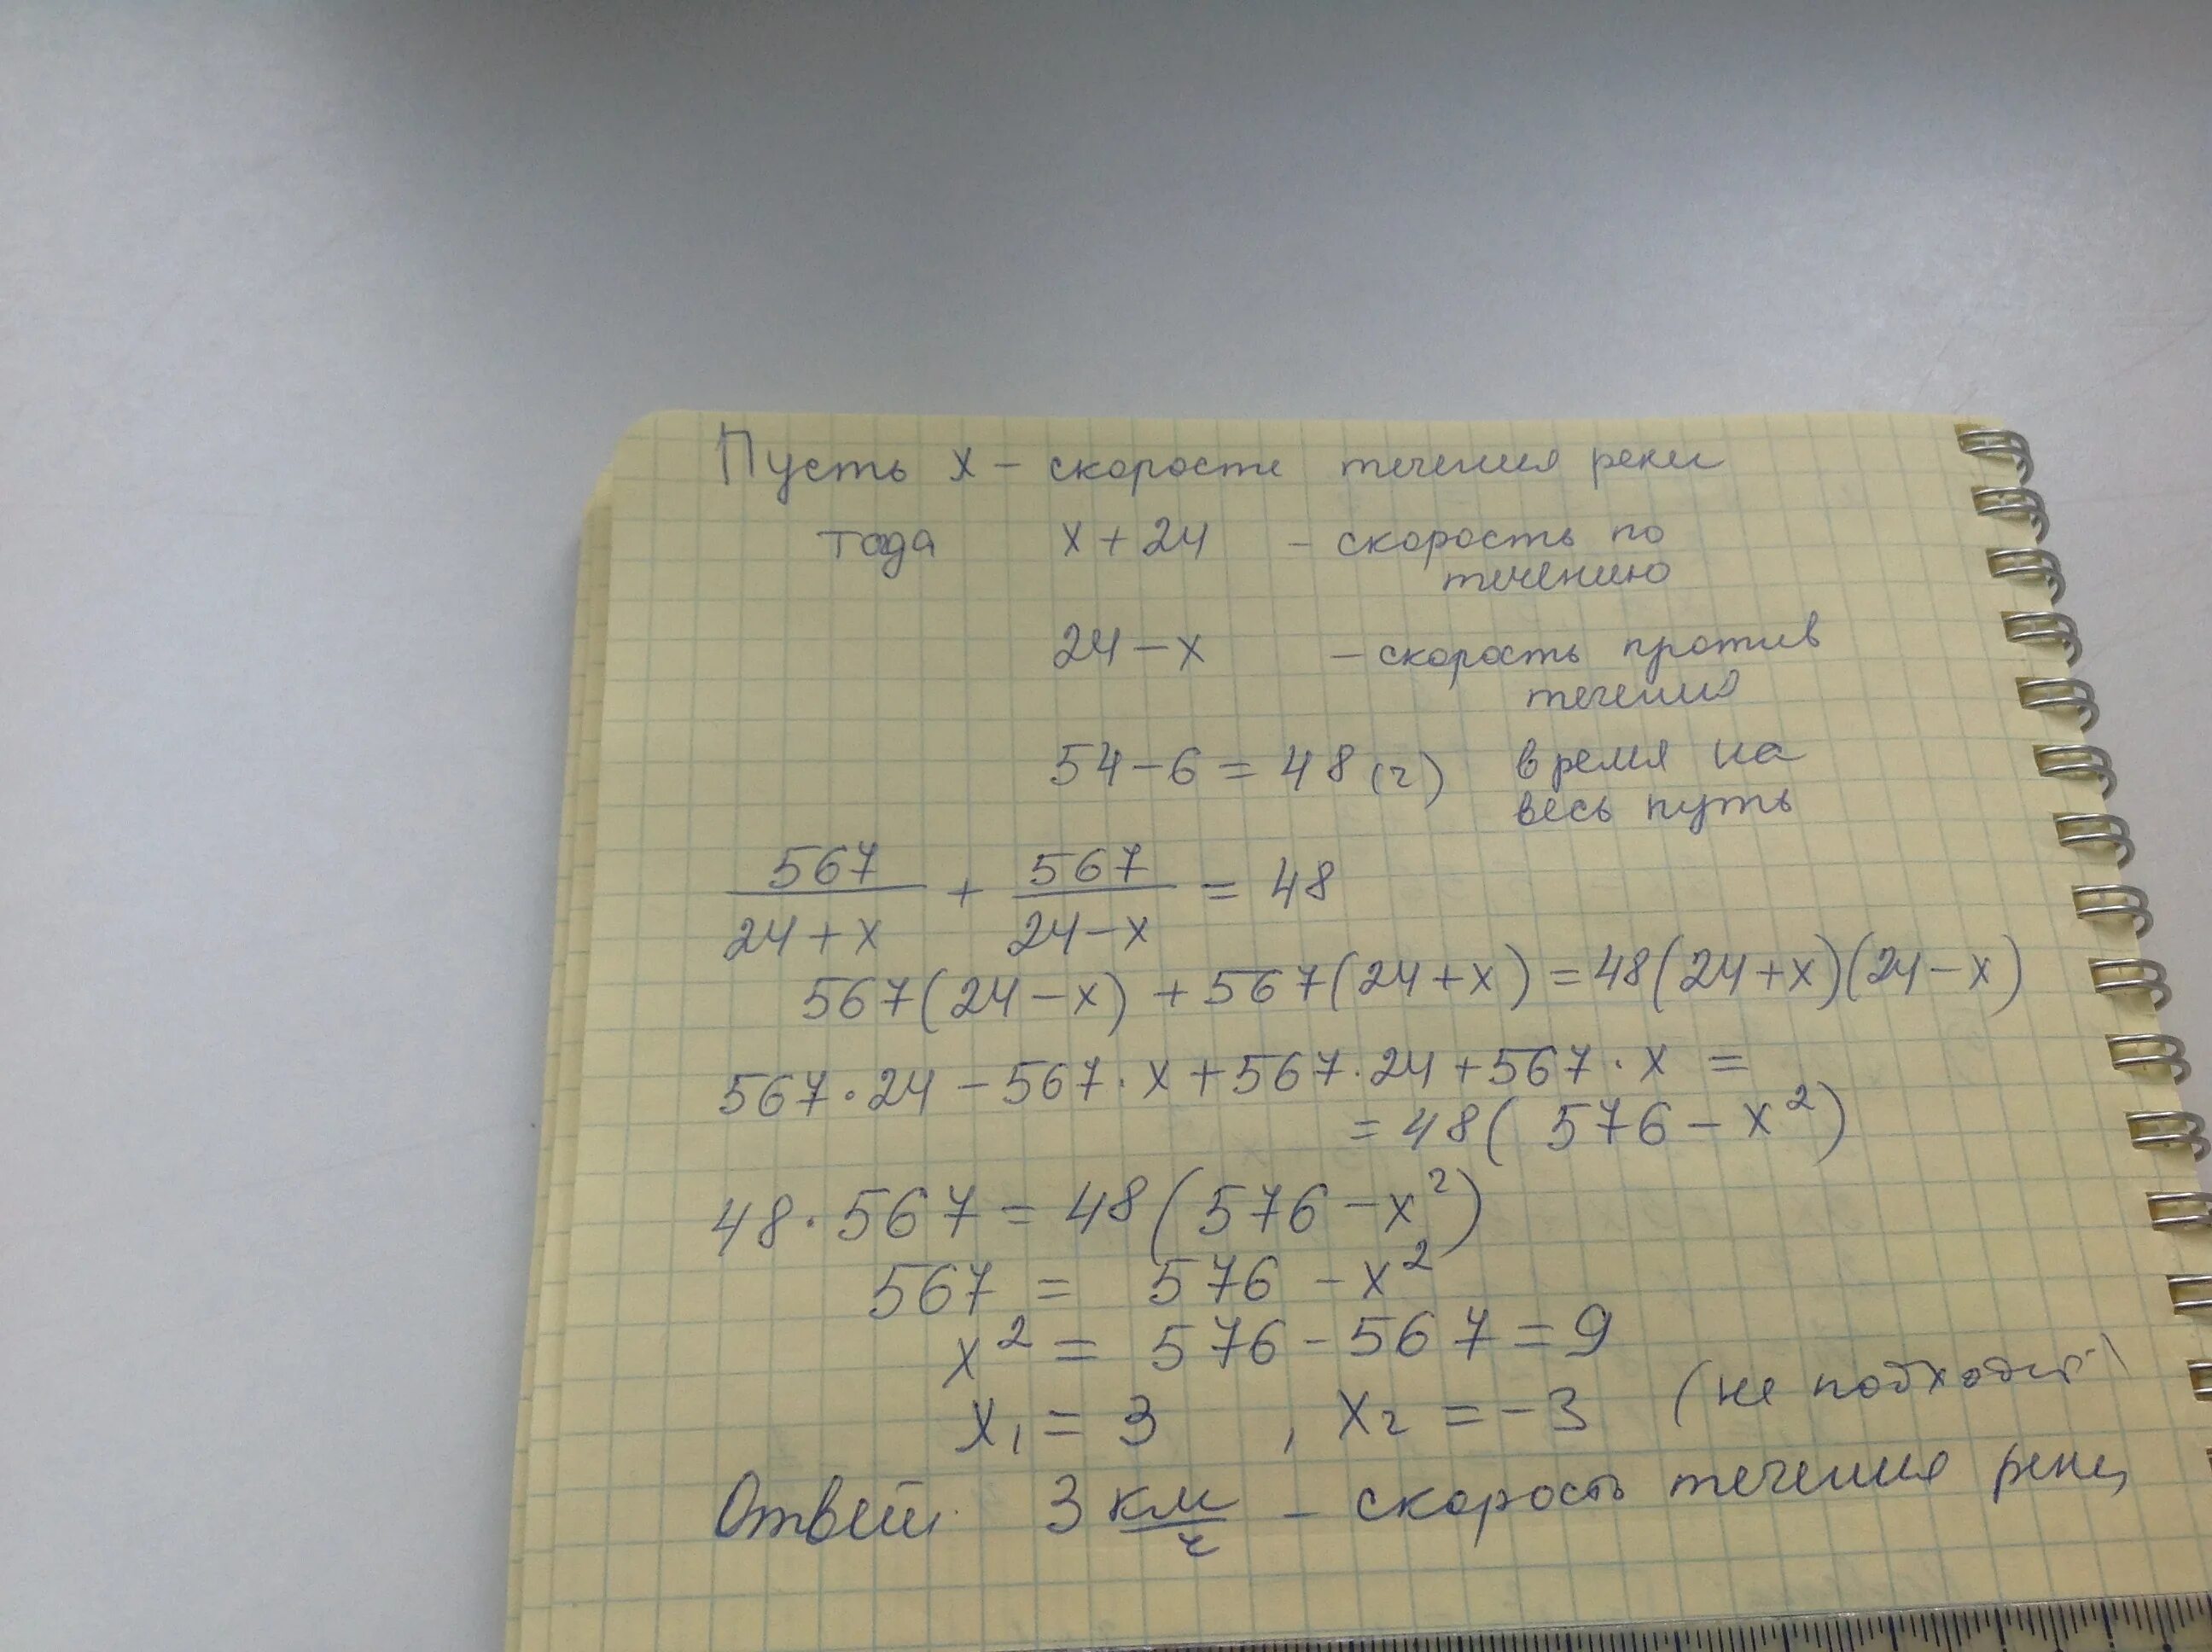 Пусть x – скорость течения реки
тогда x + 24 – скорость по
течению
24 – x – скорость против
течения
54 – 6 = 48 (ч) время на
весь путь
567/(24 + x) + 567/(24 – x) = 48
567(24 – x) + 567(24 + x) = 48(24 + x)(24 – x)
567 · 24 – 567 · x + 567 · 24 + 567 · x =
= 48( 576 – x²)
48 · 567 = 48(576 – x²)
567 = 576 – x²
x² = 576 – 567 = 9
x₁ = 3 , x₂ = –3 (не подходит)
Ответ: 3 км/ч – скорость течения реки